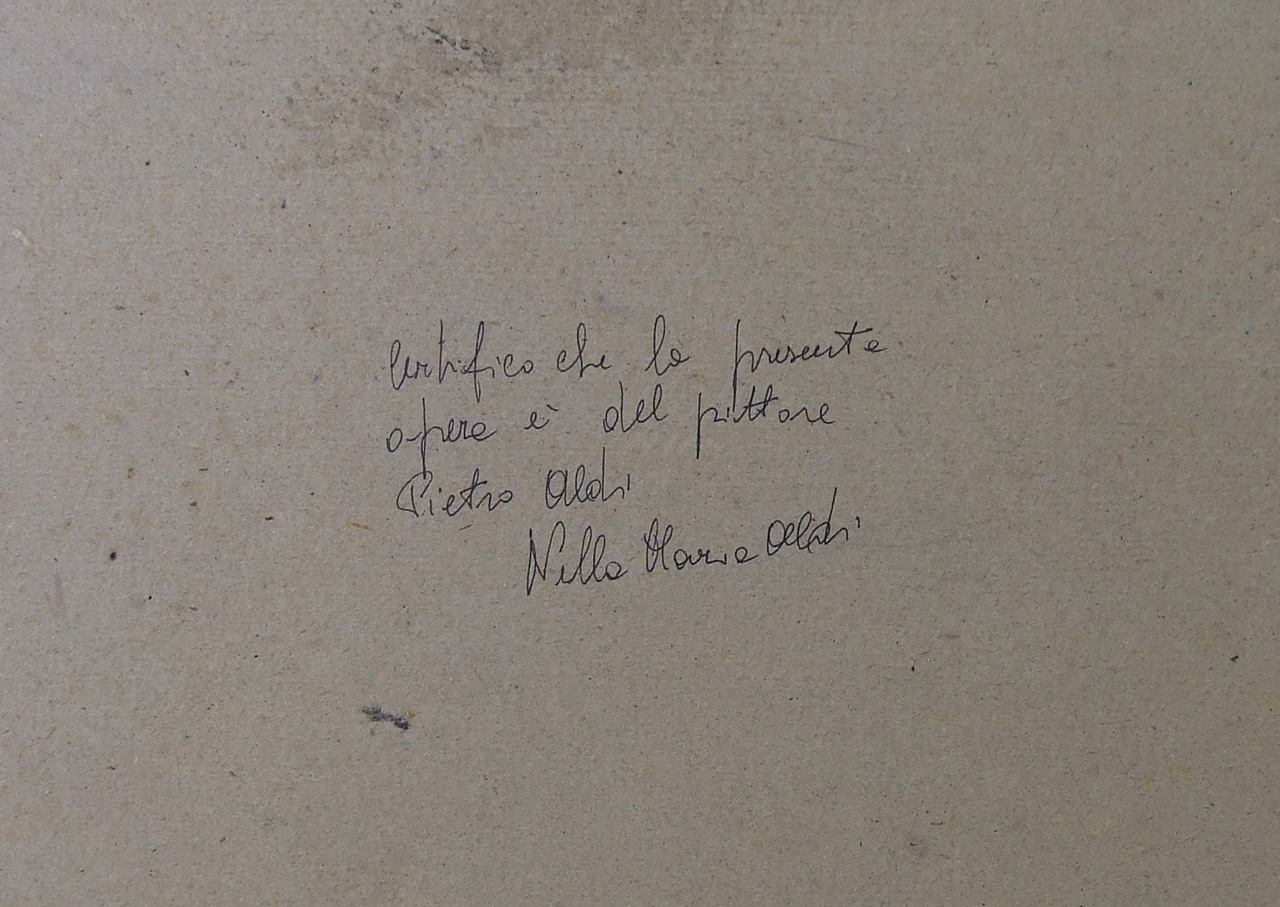 Certifico che la presente
opera è del pittore
Pietro Aldi
Nella Maria Aldi